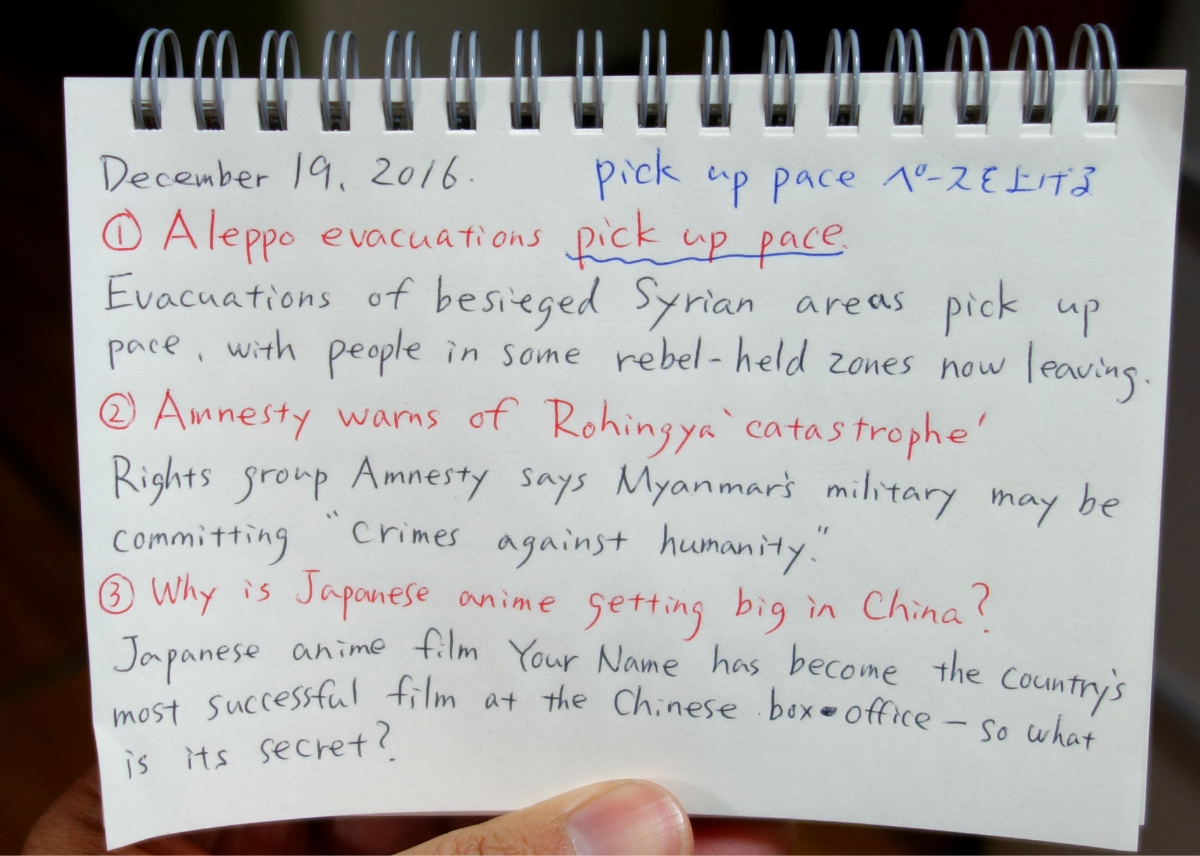 December 19, 2016. pick up pace ペースを上げる
① Aleppo evacuations pick up pace.
Evacuations of besieged Syrian areas pick up
pace, with people in some rebel-held zones now leaving.
② Amnesty warns of Rohingya 'catastrophe'
Rights group Amnesty says Myanmar's military may be
committing "crimes against humanity."
③ Why is Japanese anime getting big in China?
Japanese anime film Your Name has become the country's
most successful film at the Chinese box-office - so what
is its secret?